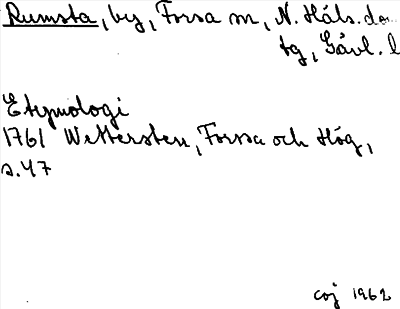 Rumsta, by, Forsa sn, N. Häls. do...
tg, Gävl. l
Etymologi
1761 Wettersten, Forssa och Hög,
s. 47
coj 1962